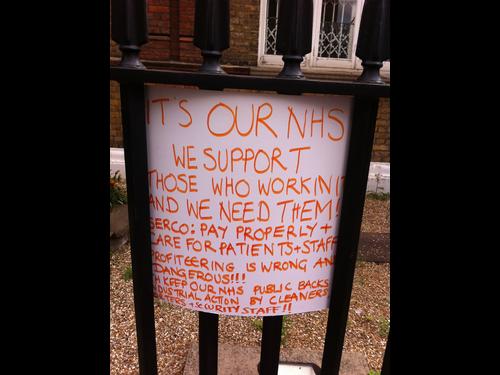 IT'S OUR NHS
WE SUPPORT
THOSE WHO WORK IN IT
AND WE NEED THEM!
SERCO: PAY PROPERLY +
CARE FOR PATIENTS + STAFF
PROFITEERING IS WRONG AND
DANGEROUS!!!
KEEP OUR NHS PUBLIC BACKS
INDUSTRIAL ACTION BY CLEANERS
+ SECURITY STAFF!!